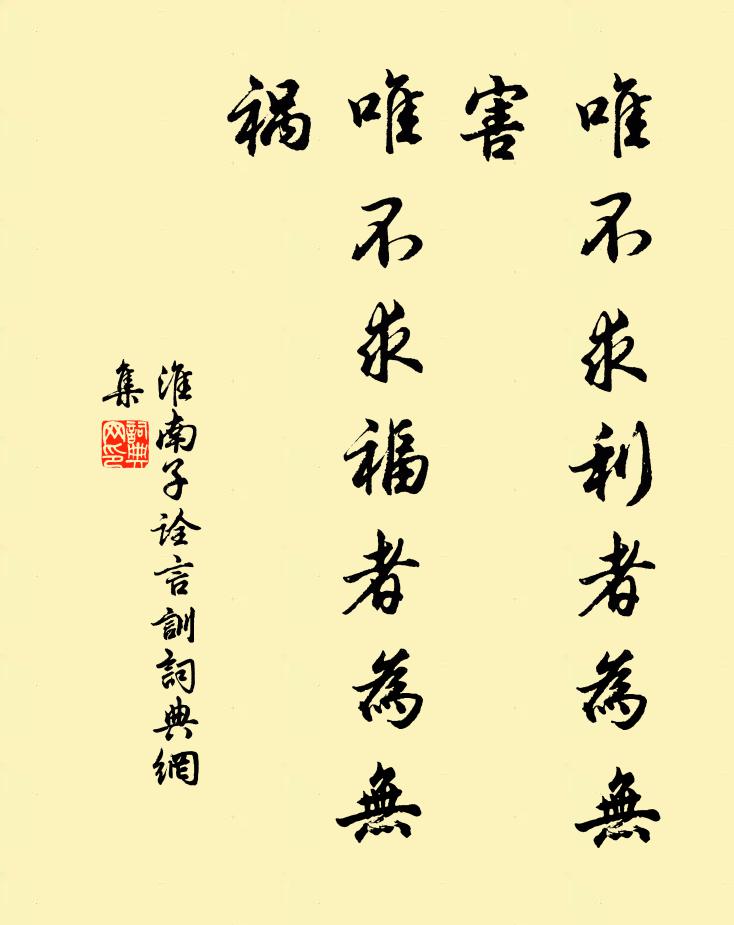 唯不求利者為無
害
唯不求福者為無
禍
淮南子詮言訓詞典網
集
詞典
网印